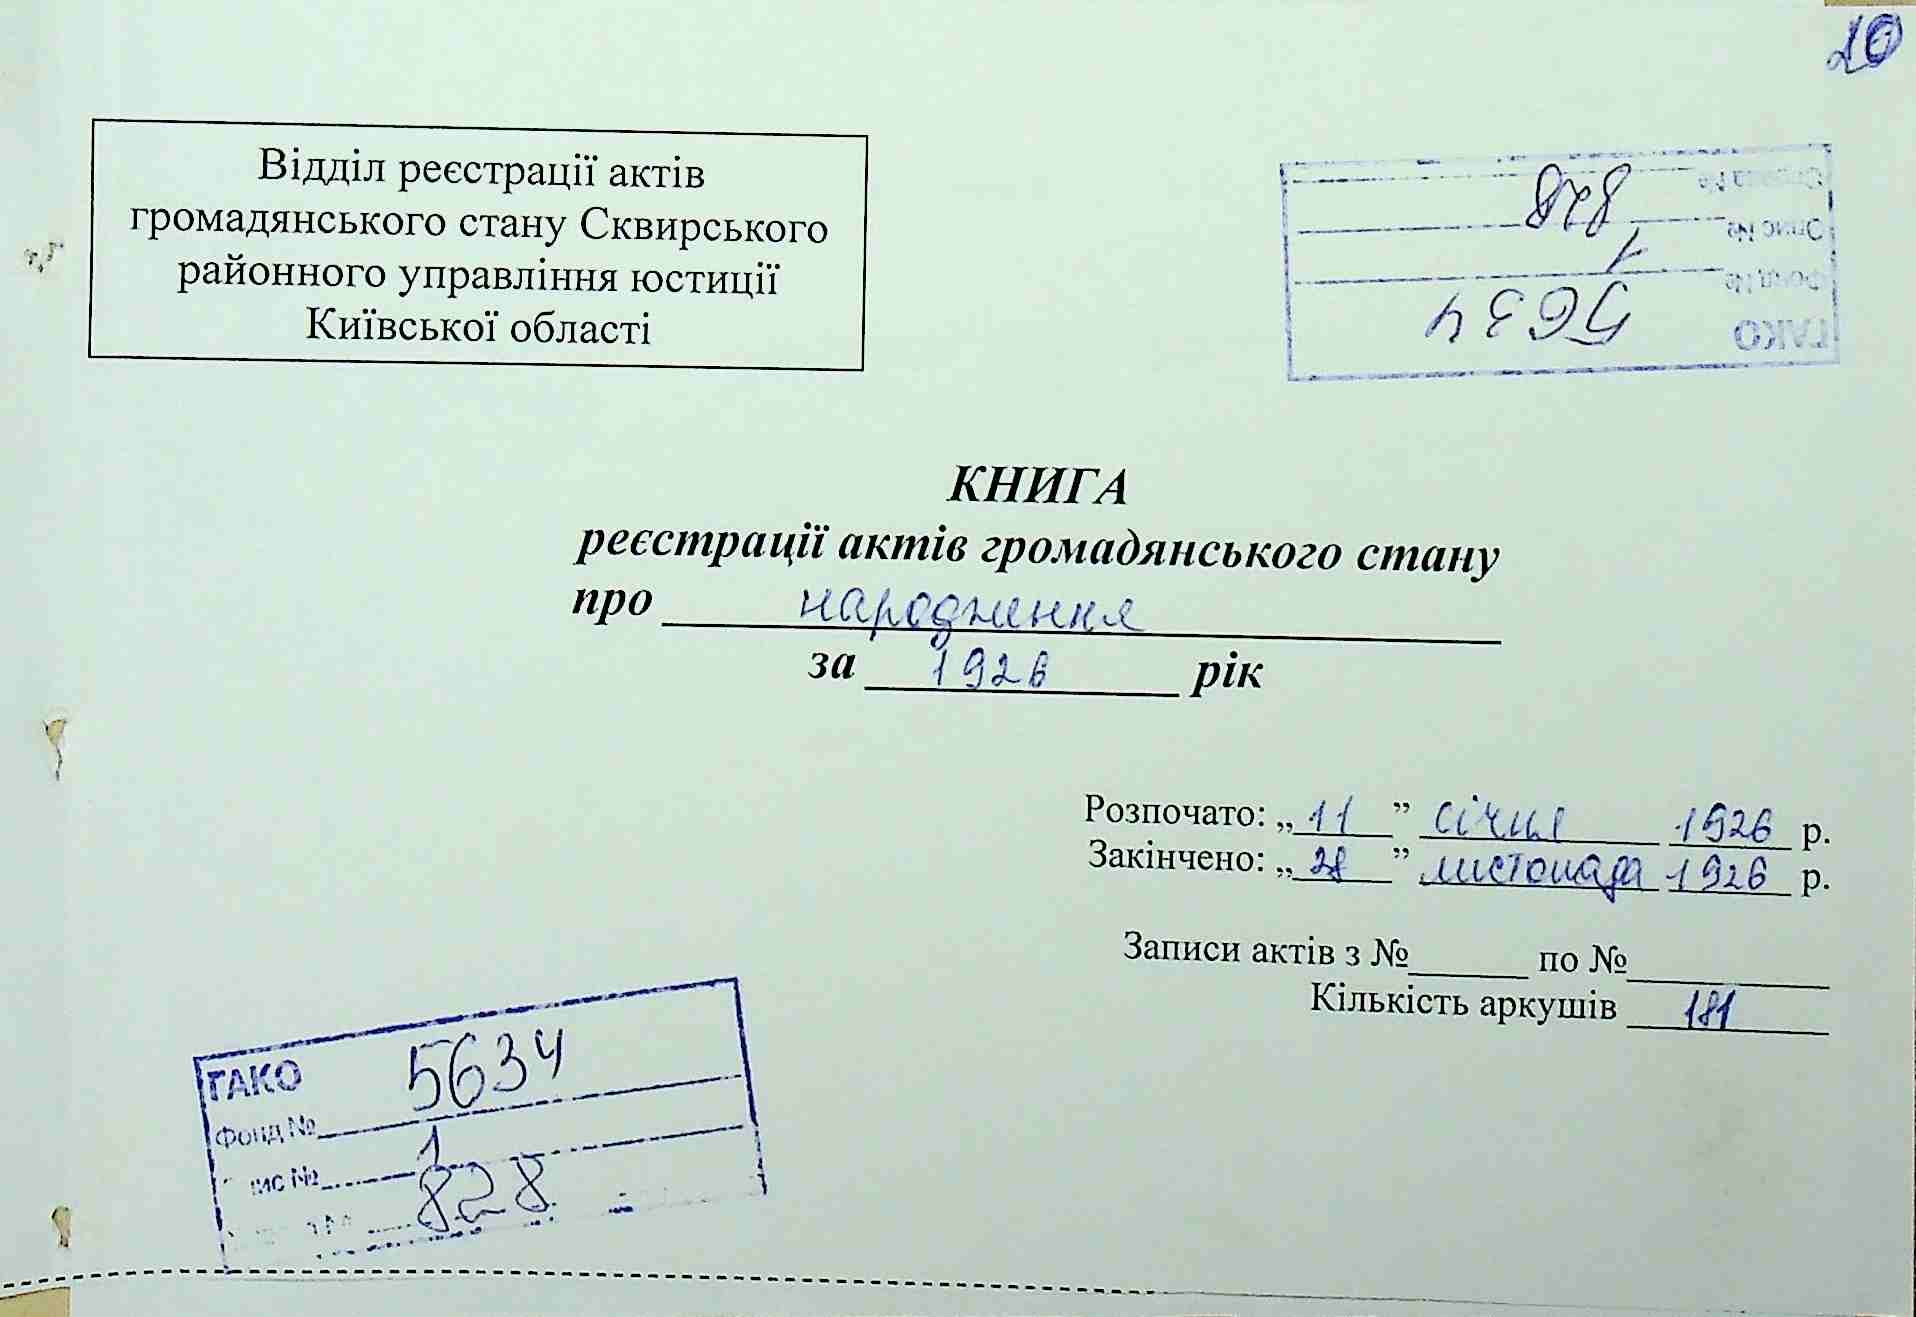 20
Відділ реєстрації актів
громадянського стану Сквирського
районного управління юстиції
Київської області
ГАКО 5634
Фонд №
Опис № 1
Справа № 828
КНИГА
реєстрації актів громадянського стану
про народження
за 1926 рік
Розпочато: „11” січня 1926 р.
Закінчено: „28” листопада 1926 р.
Записи актів з № по №
Кількість аркушів 181
ГАКО 5634
Фонд №
Опис № 1
828